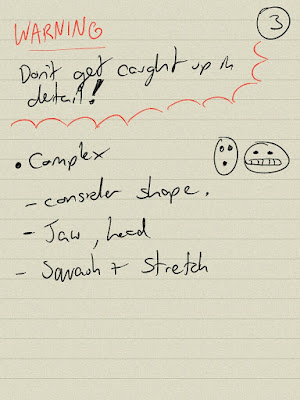 3
WARNING
Don't get caught up in
detail!
• Complex
- consider shape.
- Jaw, head
- Squash + Stretch